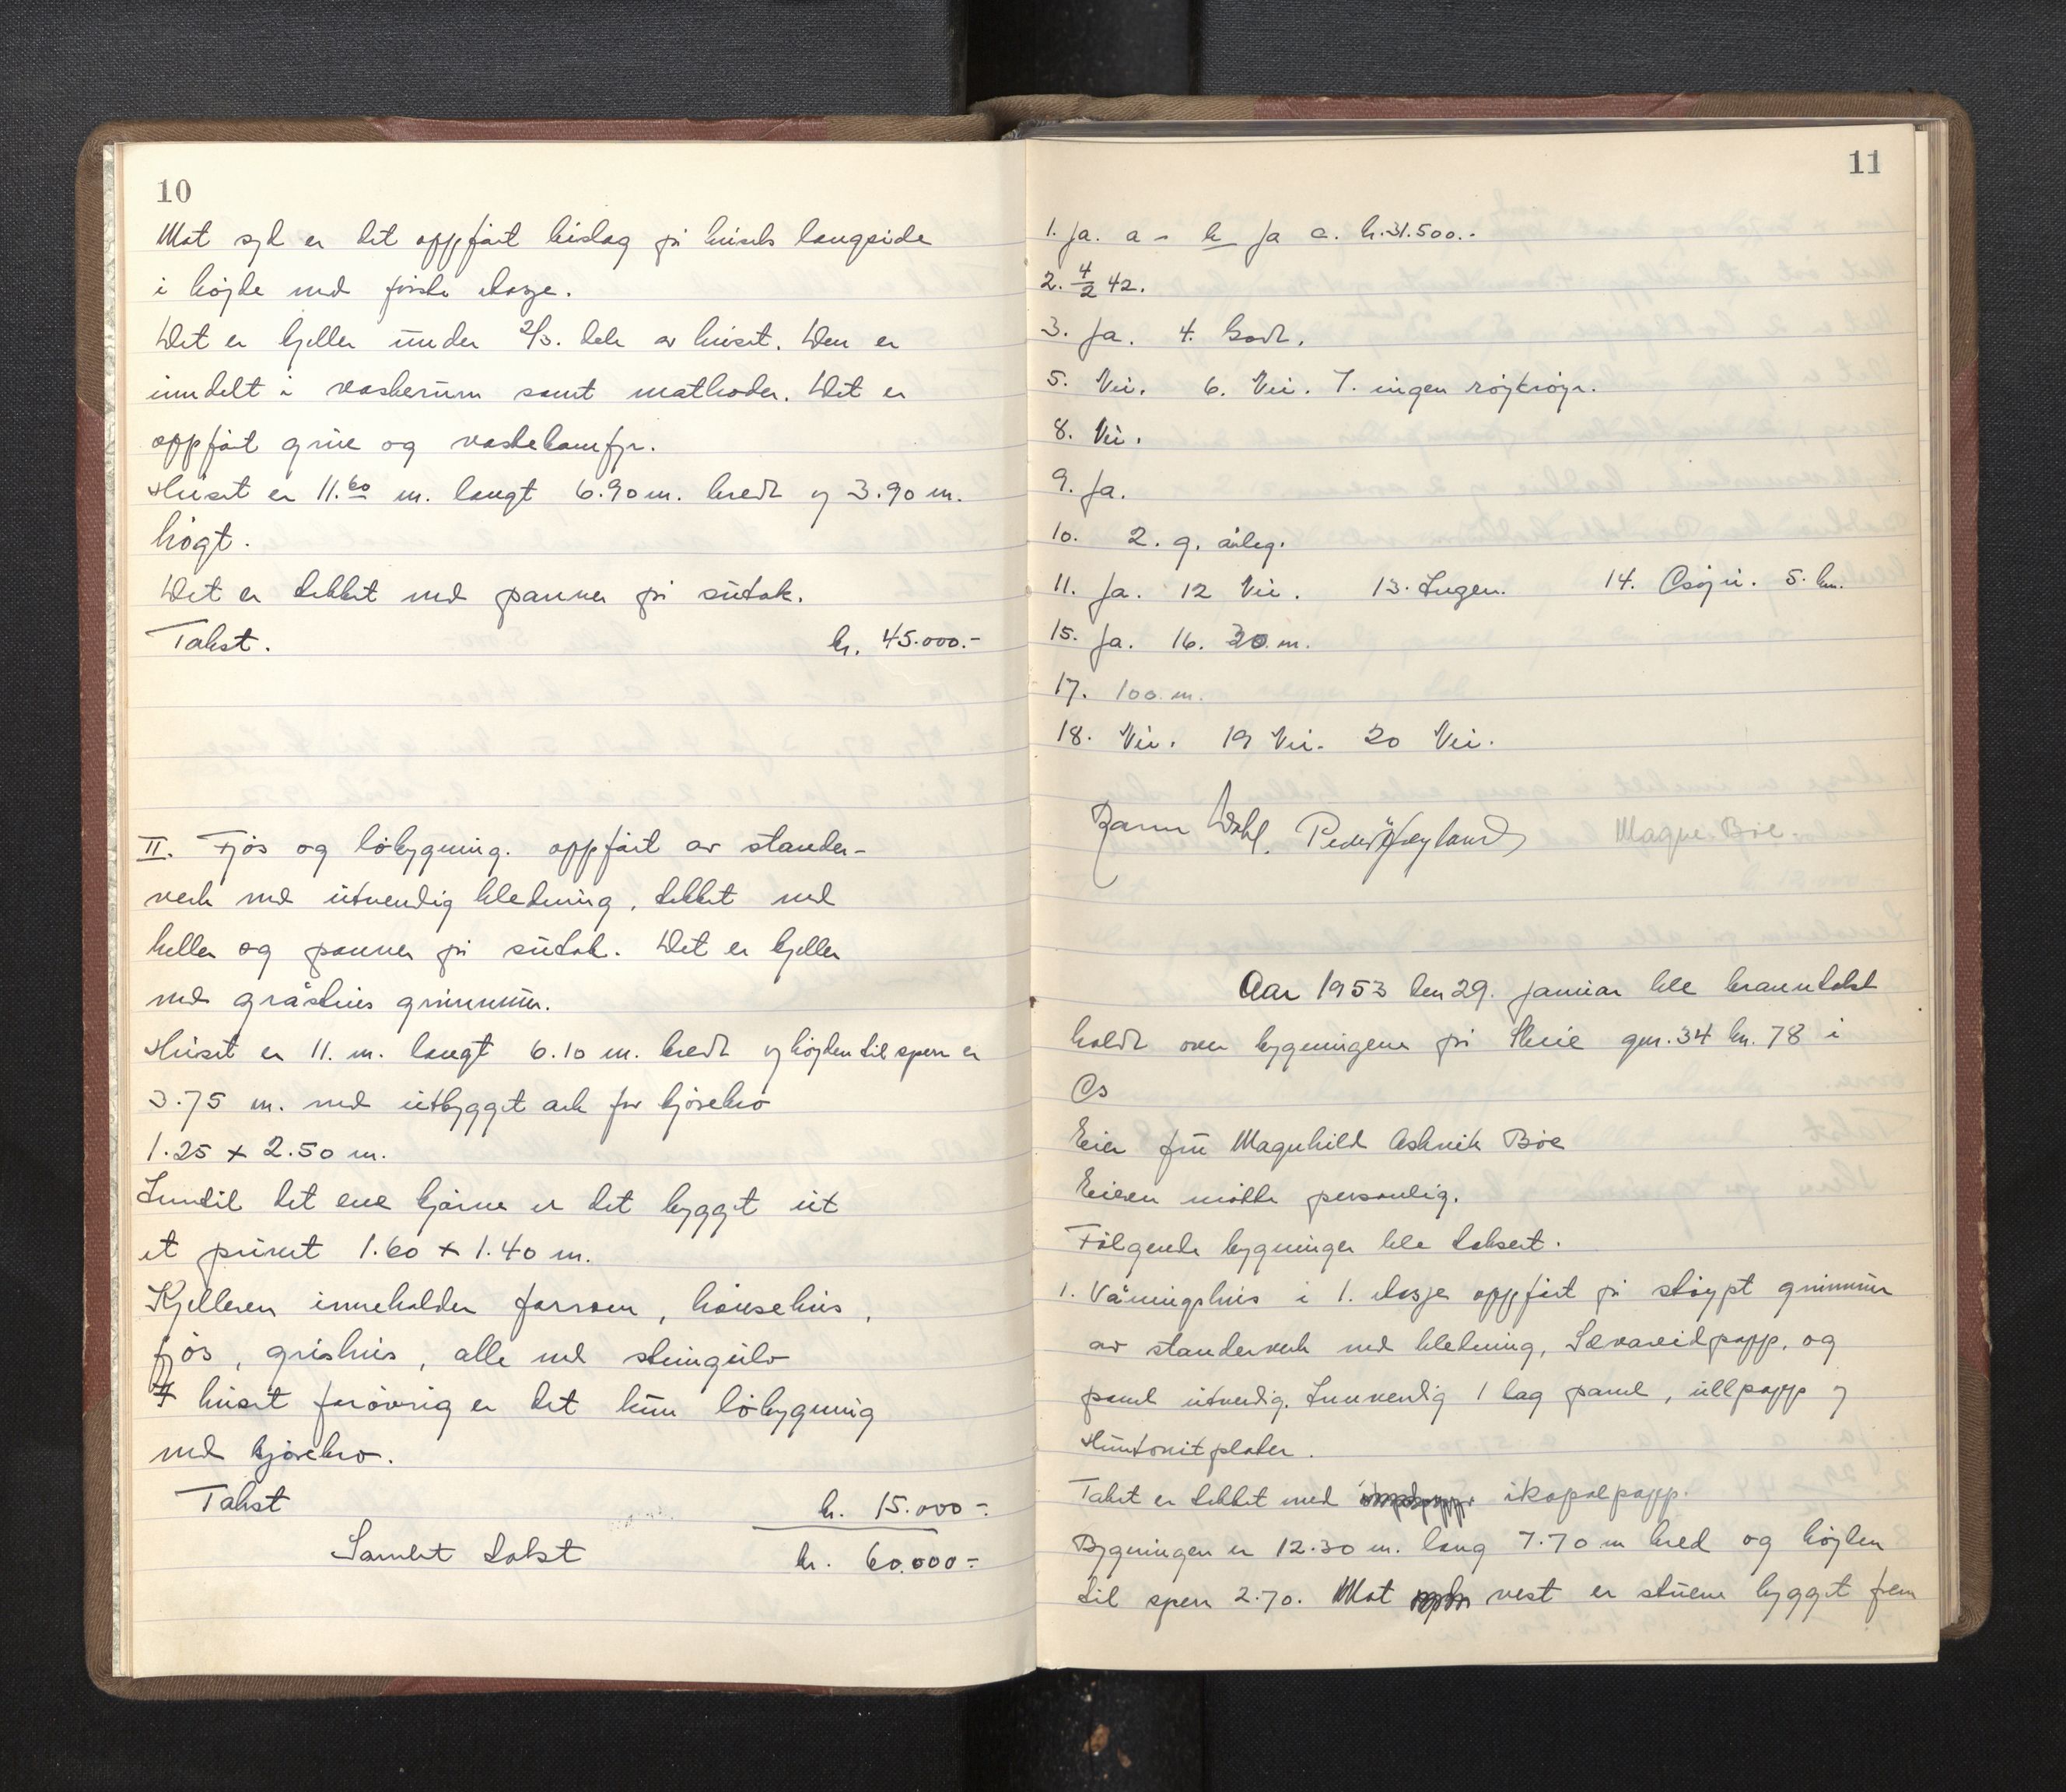 10
Mot syd er det oppført bislag på husets langside
i højde med første etasje.
Det er kjeller under 2/3. dele av huset. Den er
inndelt i vaskerum samt matboder. Det er
oppført grue og vaskekamfyr.
Huset er 11.60 m. langt 6.90 m. bredt og 3.90 m.
högt.
Det er dekket med panner på sutak.
Takst. kr. 45.000.-
II. Fjös og löbygning. oppført av stander-
verk med utvendig kledning, dekket med
heller og panner på sutak. Det er kjeller
med gråsteins grunnmur.
Huset er 11. m. langt 6.10 m. bredt og højden til sperr er
3.75 m. med utbygget ark for kjörebro
1.25 x 2.50 m.
Inntil det ene hjørne er det bygget ut
et privet 1.60 x 1.40 m.
Kjelleren inneholder forrom, hönsehus,
fjös, grishus, alle med steingulv
I huset forövrig er det kun löbygning
med kjörebro.
Takst kr. 15.000-
Samlet takst kr. 60.000-
11
1. Ja. a - b ja c. kr. 31.500.-
2. 4/2 42.
3. Ja. 4. Godt.
5. Nei. 6. Nei. 7. ingen röykröyr.
8. Nei.
9. Ja.
10. 2. g. årleg.
11. Ja. 12 Nei. 13. Ingen. 14. Osöyri. 5. km.
15. Ja. 16. 20. m.
17. 100. m.
18. Nei. 19 Nei. 20 Nei.
Dahl. Peder Höyland Magne Böe.
Aar 1953 den 29. januar ble branntakst
holdt over bygningene på Skeie gnr. 34 bn. 78 i
Os
Eier fru Magnhild Askvik Böe
Eieren møtte personlig.
Fölgende bygninger ble taksert.
1. Våningshus i 1. etasje oppført på støypt grunnmur
av standerverk med kledning, Sævareidpapp, og
panel utvendig. Innvendig 1 lag panel, ullpapp og
Huntonitplater.
Taket er dekket med ikopalpapp.
Bygningen er 12.30 m. lang 7.70 m bred og højden
til sperr 2.70. Mot vest er stuene bygget frem